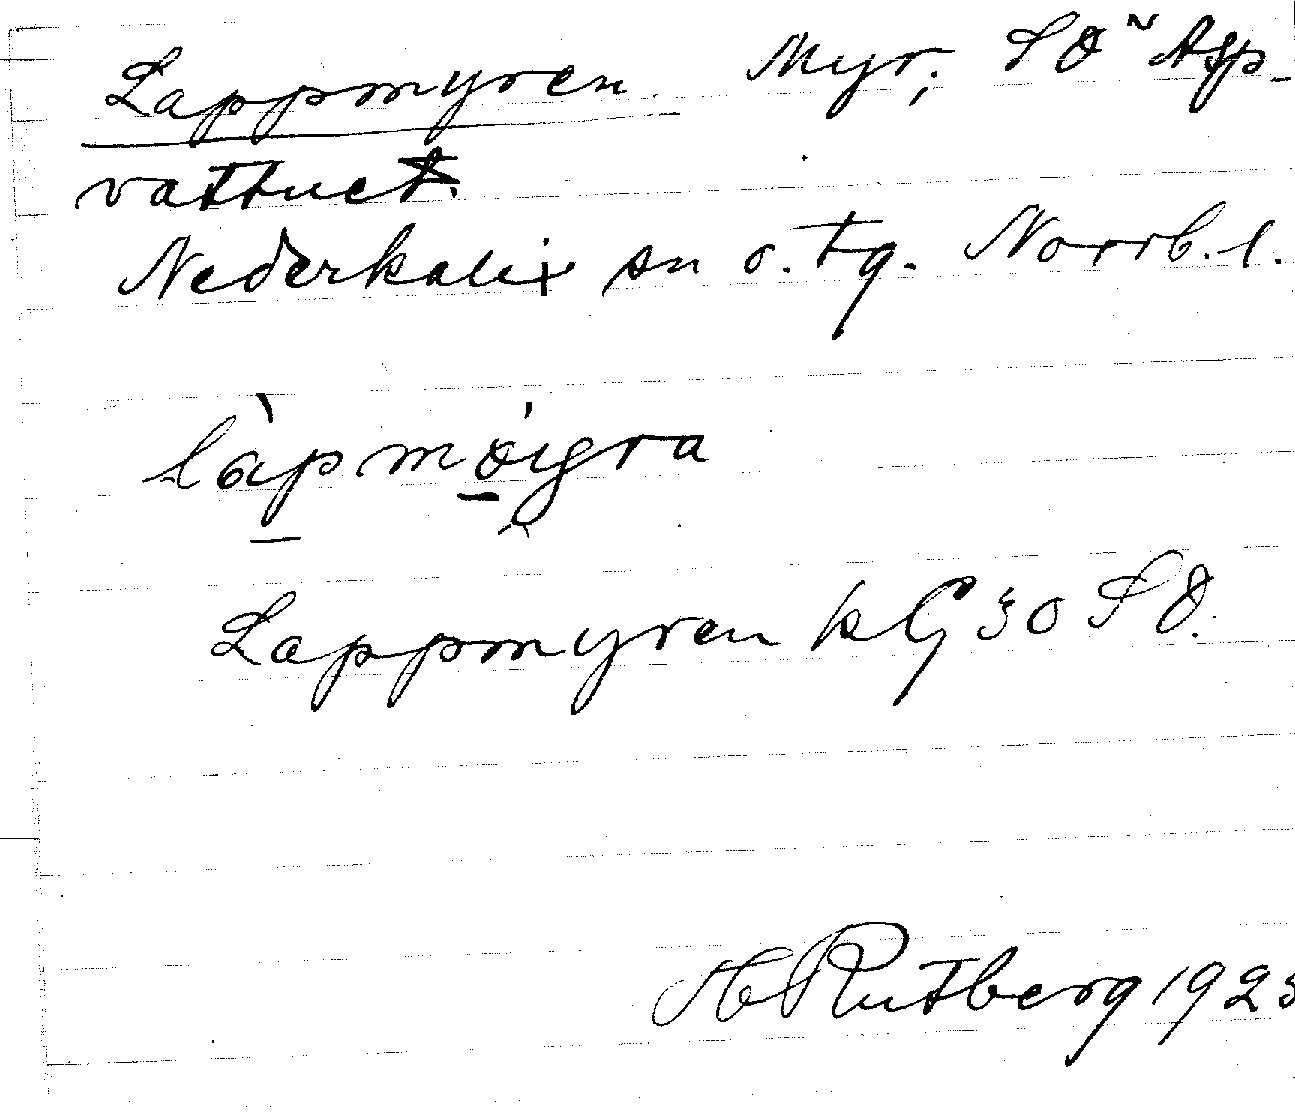 Lappmyren Myr, SO Asp-
vattnet.
Nederkalix sn o. tg. Norrb. l.
làpmöyra
Lappmyren kG 30 SO.
H Rutberg 192